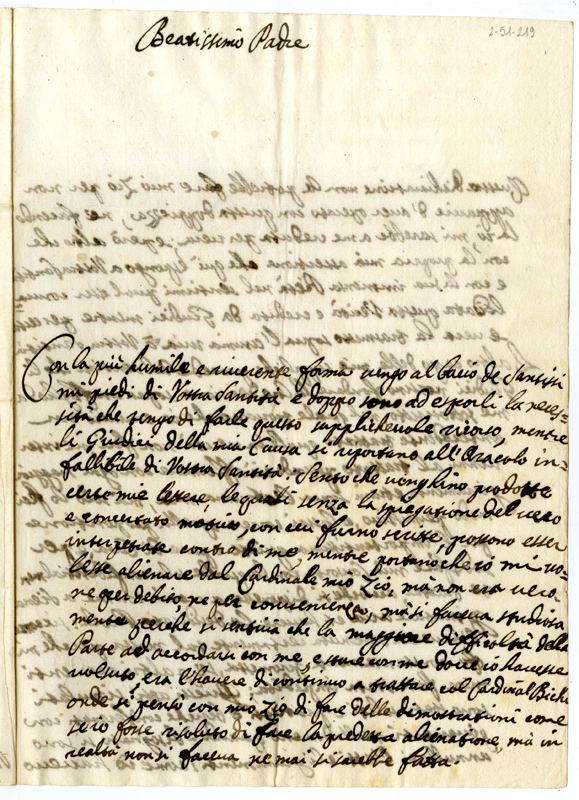 2-51-219
Beatissimo Padre
Con la più humile e riuerente forma uengo al bacio de Santissi
mi piedi di Vostra Santità e doppo sono ad esporli la neces=
sità che tengo di farle questo supplicheuole ricorso, mentre
li Giudici della mia Causa si riportano all'Oracolo in=
fallibile di Vostra Santità. Sento che uenghino prodotte
certe mie lettere, le quali senza la spiegatione del uero
e concertato motiuo, con cui furno scritte, possono esser
interpetrate contro di me, mentre portano che io mi uo=
lesse alienare dal Cardinale mio Zio, mà non era uero
ne per debito, ne per conuenienza, mà si faceua studiosa
mente perche si sentiua che la maggiore difficoltà della
Parte ad accordarsi con me, e stare con me doue io hauesse
uolsuto, era l'hauere di continuo a trattare col Cardinal Bichi
onde si pensò con mio Zio di fare delle dimostrationi come
se io fosse risoluto di fare la predetta alienatione, mà in
realtà non si faceua ne mai si sarebbe fatta.